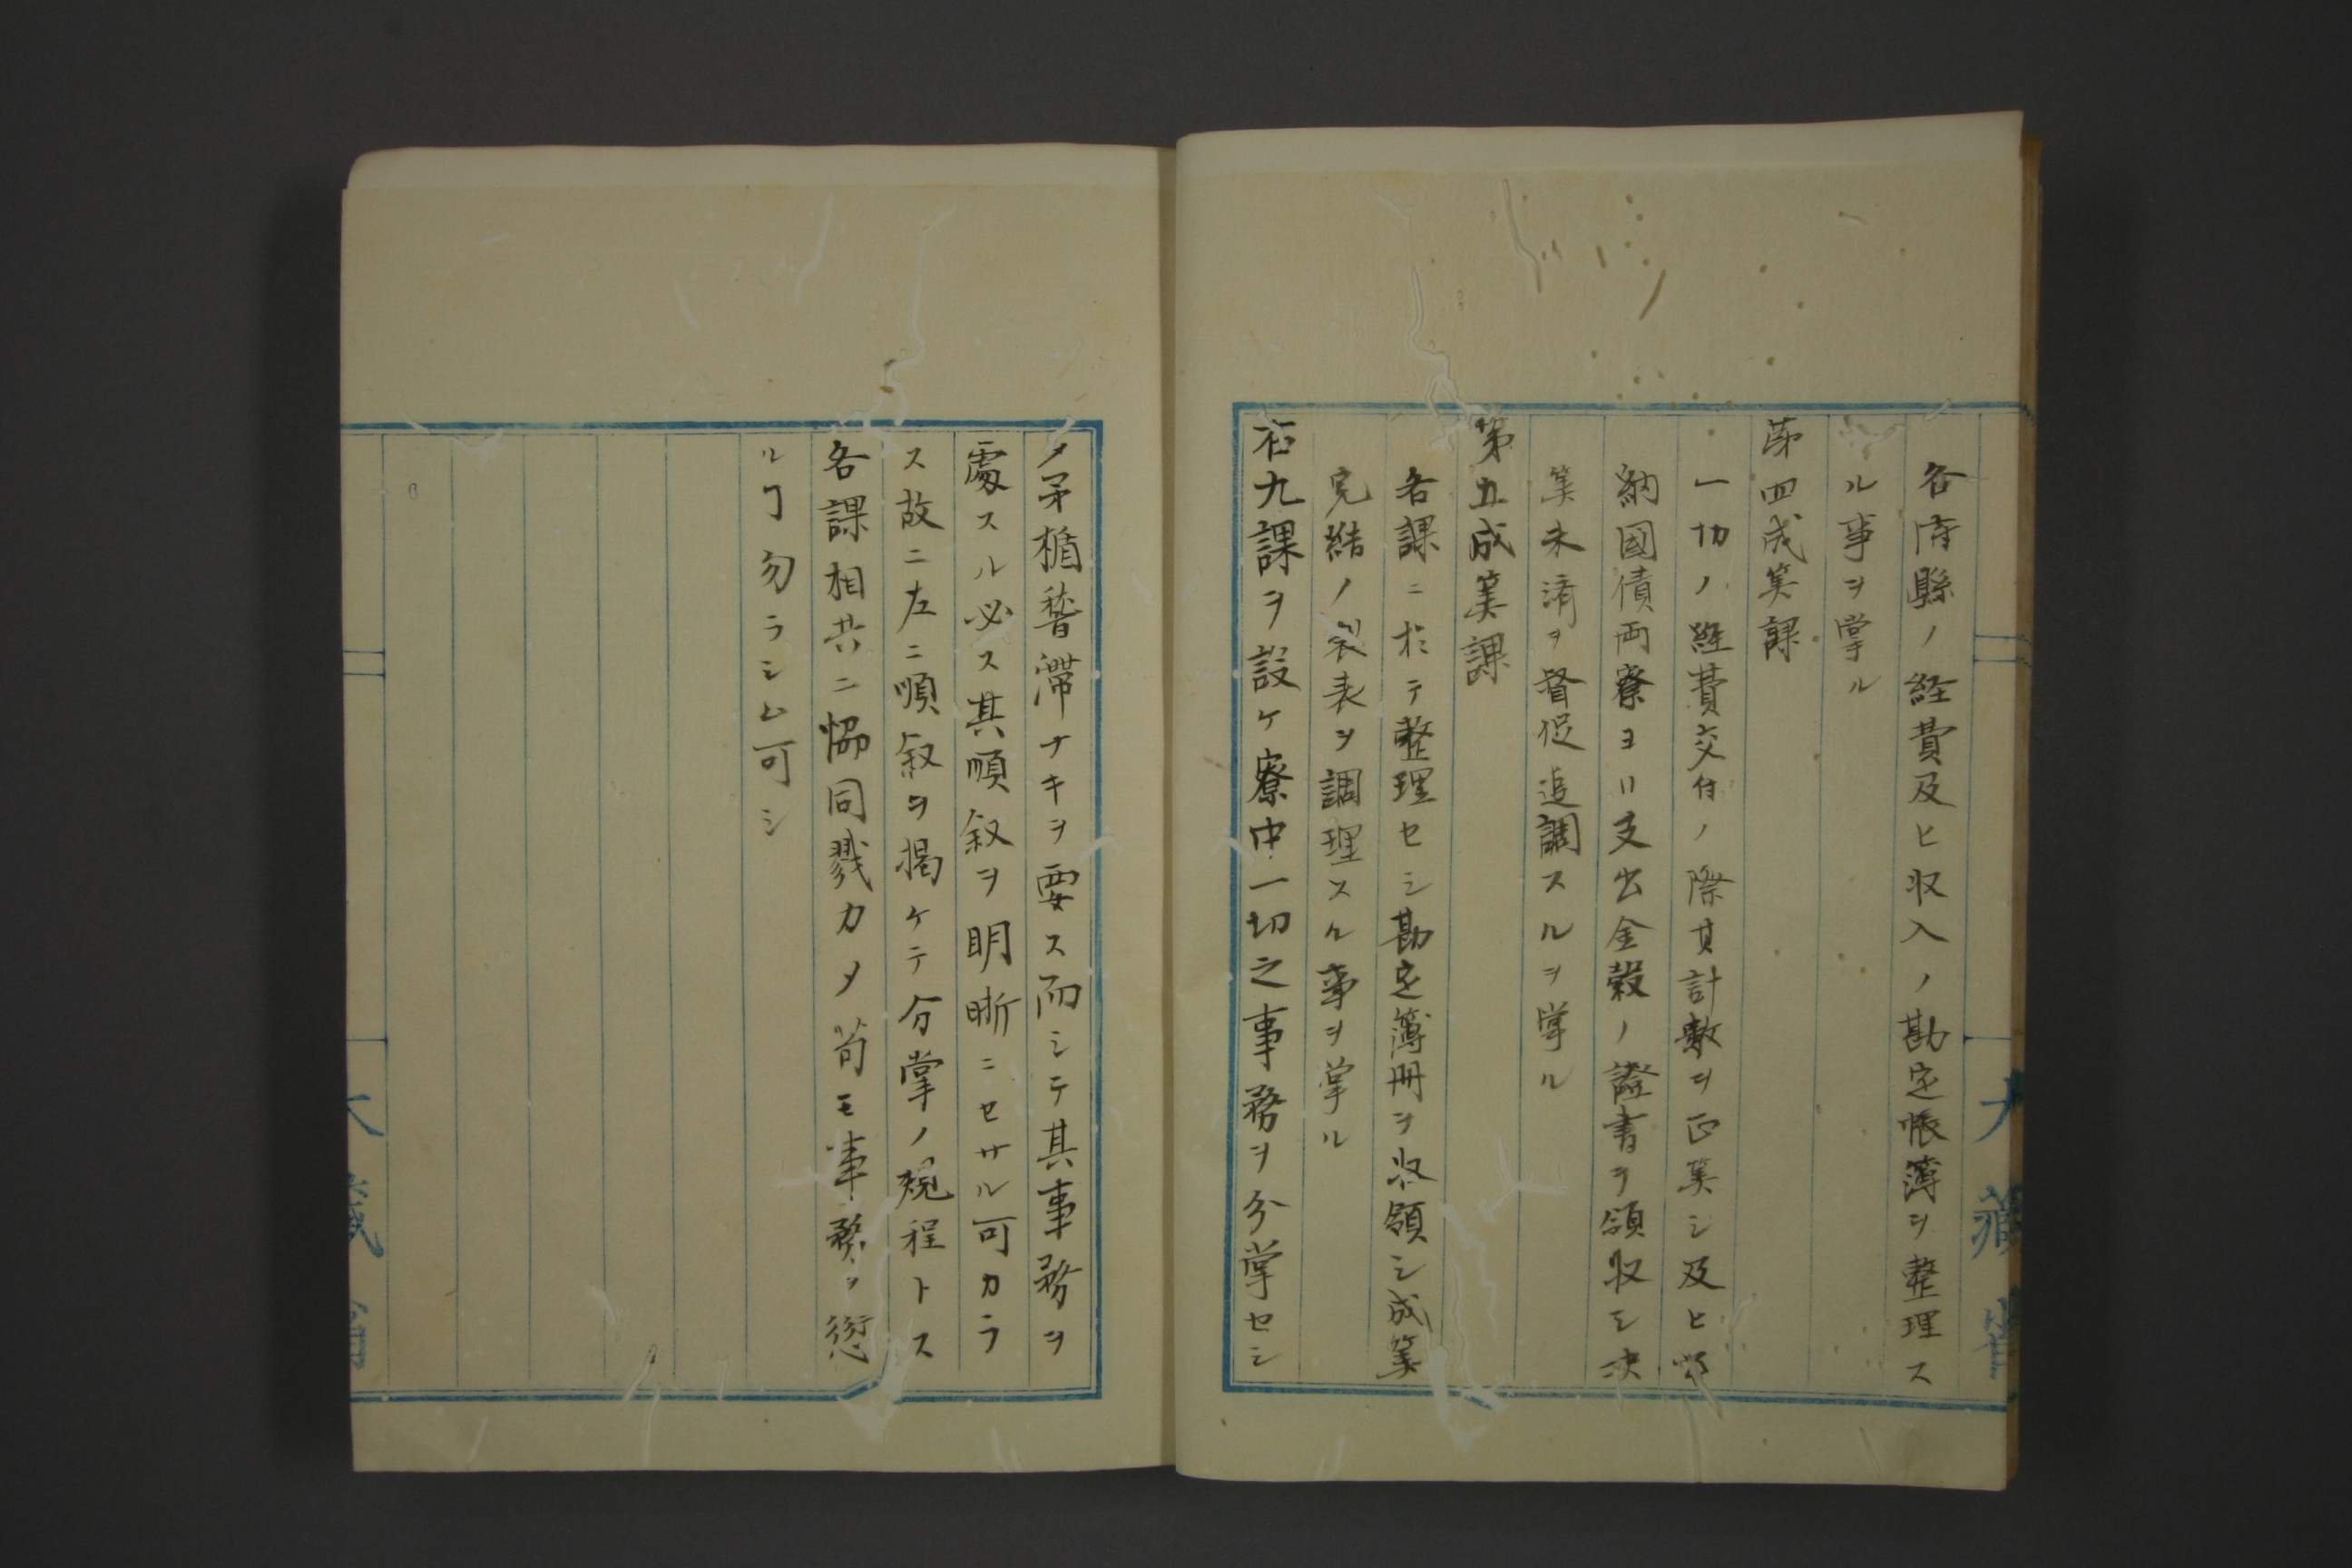 大藏省
各府縣ノ経費及ヒ収入ノ勘定帳簿ヲ整理ス
ル事ヲ掌ル
第四成筭課
一切ノ経費交付ノ際其計數ヲ正筭シ及ヒ
納國債両寮ヨリ支出金穀ノ證書ヲ領収シ決
筭未済ヲ督促追調スルヲ掌ル
第五成筭課
各課ニ於テ整理セシ勘定簿冊ヲ収領シ成筭
完結ノ製表ヲ調理スル事ヲ掌ル
右九課ヲ設ケ寮中一切之事務ヲ分掌セシ
メ矛楯稽滞ナキヲ要ス而シテ其事務ヲ
處スル必ス其順叙ヲ明晰ニセサル可カラ
ス故ニ左ニ順叙ヲ掲ケテ分掌ノ規程トス
各課相共ニ恊同戮力メ苟モ事務ヲ愆
ルヿ勿ラシム可シ
大藏省